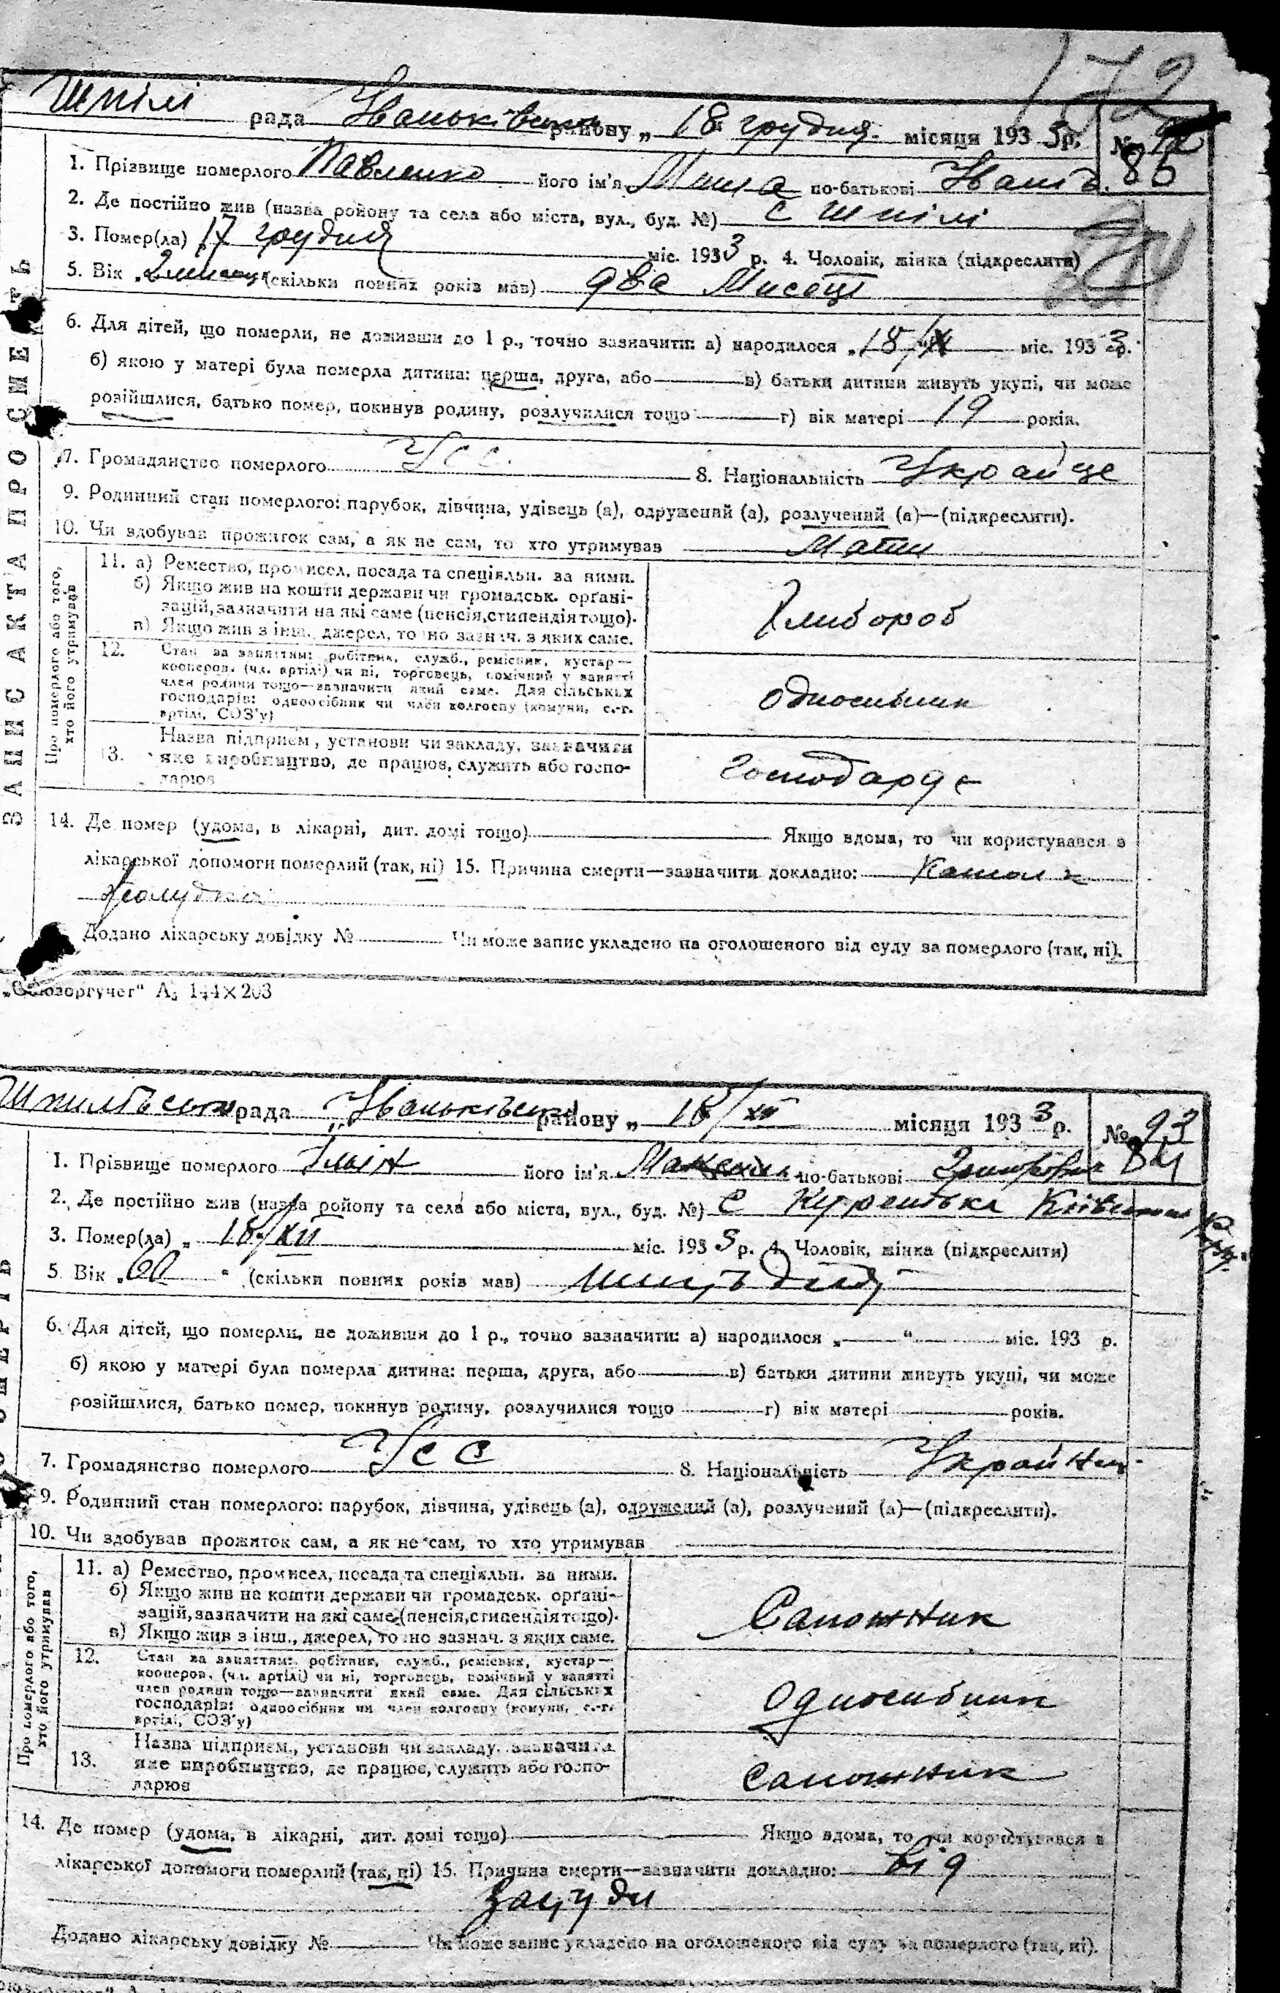 172
Шпілі рада Іваньківська району „ 18 грудня місяця 1933 р. №
85
1. Прізвище померлого Павленко його ім'я Миша по-батькові Іван
2. Де постійно жив (назва ройону та села або міста, вул., буд. №) с Шпілі
3. Помер(ла) 17 грудня міс. 1933 р. 4. Чоловік, жінка (підкреслити)
5. Вік „2 (скільки повних років мав) два Місеці
6. Для дітей, що померли, не доживши до 1 р., точно зазначити: а) народилося „18/X міс. 1933 р.
б) якою у матері була померла дитина: перша, друга, або в) батьки дитини живуть укупі, чи може
розійшлися, батько помер, покинув родину, розлучилися тощо г) вік матері 19 років.
7. Громадянство померлого УСС 8. Національність Украйце
9. Родинний стан померлого: парубок, дівчина, удівець (а), одружений (а), розлучений (а)—(підкреслити).
10. Чи здобував прожиток сам, а як не сам, то хто утримував Мати
ЗАПИС АКТА ПРО СМЕРТЬ
Про померлого або того, хто його утримував
11. а) Ремество, промисел, посада та спеціяльн. за ними.
б) Якщо жив на кошти держави чи громадськ. органі-
зацій, зазначити на які саме (пенсія, стипендія тощо).
в) Якщо жив з інш., джерел, точно зазнач. з яких саме.
Хлибороб
12. Стан за заняттям: робітник, служб., ремісник, кустар—
кооперов. (чл. артілі) чи ні, торговець, помічний у занятті
член родини тощо—зазначити який саме. Для сільських
господарів: одноосібник чи член колгоспу (комуни, с.-г.
артілі, СОЗ'у)
односибник
13. Назва підприєм., установи чи закладу, зазначити
яке виробництво, де працює, служить або госпо-
дарює
господарує
14. Де помер (удома, в лікарні, дит. домі тощо) Якщо вдома, то чи користувався в
лікарської допомоги померлий (так, ні) 15. Причина смерти—зазначити докладно:
Додано лікарську довідку № Чи може запис укладено на оголошеного від суду за померлого (так, ні).
„Союзоргучет" А₅ 144×203
рада Іваньківська району „ 18/XII місяця 1933 р. № 93
84
1. Прізвище померлого його ім'я по-батькові
2. Де постійно жив (назва ройону та села або міста, вул., буд. №) с
3. Помер(ла) „ 18/XII міс. 1933 р. 4. Чоловік, жінка (підкреслити)
5. Вік „60 " (скільки повних років мав)
6. Для дітей, що померли, не доживши до 1 р., точно зазначити: а) народилося „ " міс. 193 р.
б) якою у матері була померла дитина: перша, друга, або в) батьки дитини живуть укупі, чи може
розійшлися, батько помер, покинув родину, розлучилися тощо г) вік матері років.
7. Громадянство померлого УСС 8. Національність
9. Родинний стан померлого: парубок, дівчина, удівець (а), одружений (а), розлучений (а)—(підкреслити).
10. Чи здобував прожиток сам, а як не сам, то хто утримував
Про померлого або того, хто його утримував
11. а) Ремество, промисел, посада та спеціяльн. за ними.
б) Якщо жив на кошти держави чи громадськ. органі-
зацій, зазначити на які саме (пенсія, стипендія тощо).
в) Якщо жив з інш., джерел, точно зазнач. з яких саме.
Сапожник
12. Стан за заняттям: робітник, служб., ремісник, кустар—
кооперов. (чл. артілі) чи ні, торговець, помічний у занятті
член родини тощо—зазначити який саме. Для сільських
господарів: одноосібник чи член колгоспу (комуни, с.-г.
артілі, СОЗ'у)
односибник
13. Назва підприєм., установи чи закладу, зазначити
яке виробництво, де працює, служить або госпо-
дарює
сапожник
14. Де помер (удома, в лікарні, дит. домі тощо) Якщо вдома, то чи користувався в
лікарської допомоги померлий (так, ні) 15. Причина смерти—зазначити докладно: від
Додано лікарську довідку № Чи може запис укладено на оголошеного від суду за померлого (так, ні).